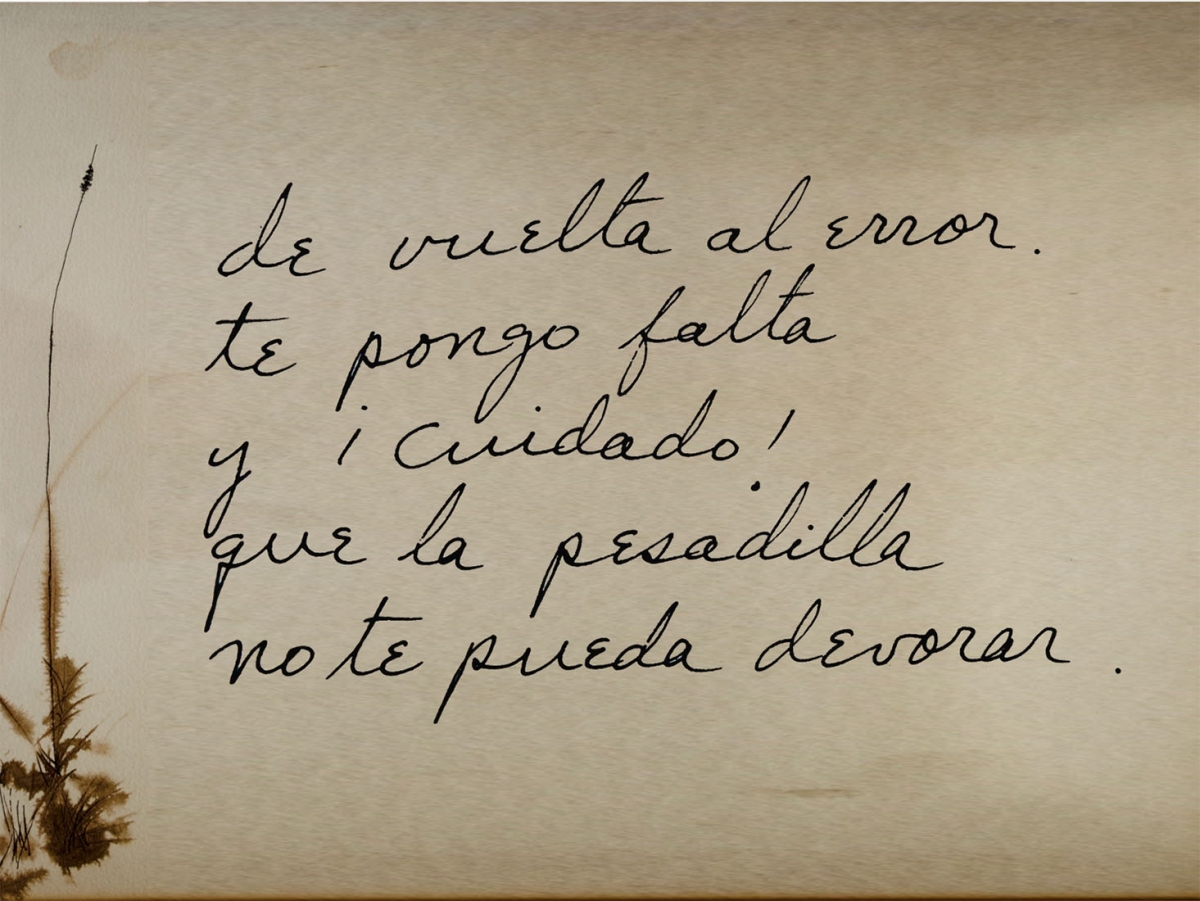 de vuelta al error.
te pongo falta
y ¡cuidado!
que la pesadilla
no te pueda devorar.